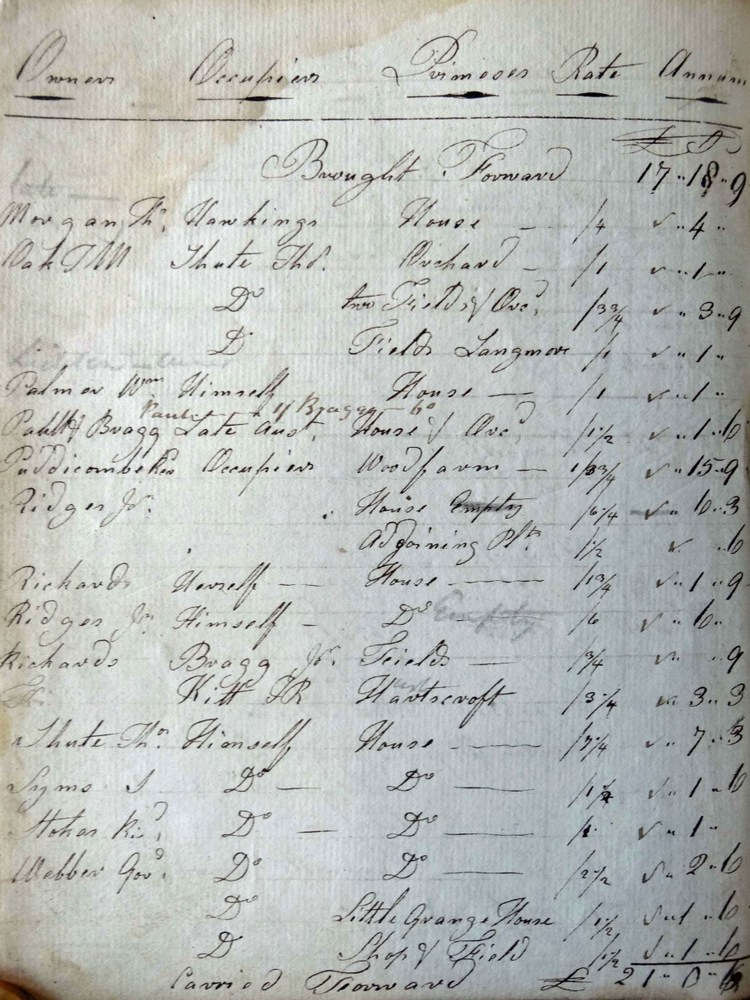 Owners Occupiers Primeses Rate Annum
£ S
Brought Forward 17 " 18 " 9
late
Morgan Th. Hawkings House — /4 " 4 "
Oak Shute Tho. Orchard — /1 " 1 "
Do two Fields & Orcd. /3¾ " 3 " 9
D Fields Langmore /1 " 1 "
Palmer Wm Himself House — /1 " 1 "
Bragg — 6
Paull & Bragg Late House & Orcd. /1½ " 1 " 6
Puddicombe Occupiers Woodfarm — " 15 " 9
Ridges Jn. House Empty /6¼ " 6 " 3
Adjoining Plt. /1½ " 6
Richards Herself — House — /1¾ " 1 " 9
Ridges Jn. Himself — Do Empty /6 " 6 "
Richards Bragg Jn. Feilds — /¾ " 9
Kitt JR Hartscroft /3¼ " 3 " 3
Shute Tho. Himself House — /7¼ " 7 " 3
Syms J Do — Do — " 1 " 6
Ricd. Do — Do — /1 " 1 "
Webber Do Do — /2½ " 2 " 6
Do Little Grange House /1½ " 1 " 6
D Shop & Field /1½ " 1 " 6
Carried Foorward £ 21 " 0 " 6